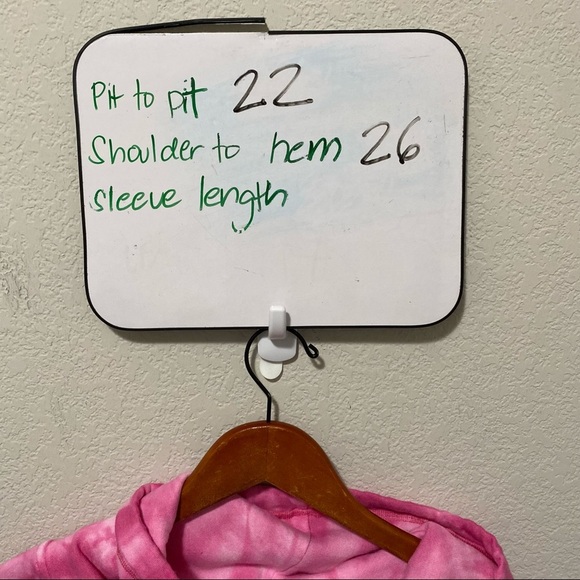 Pit to pit 22
Shoulder to hem 26
sleeve length